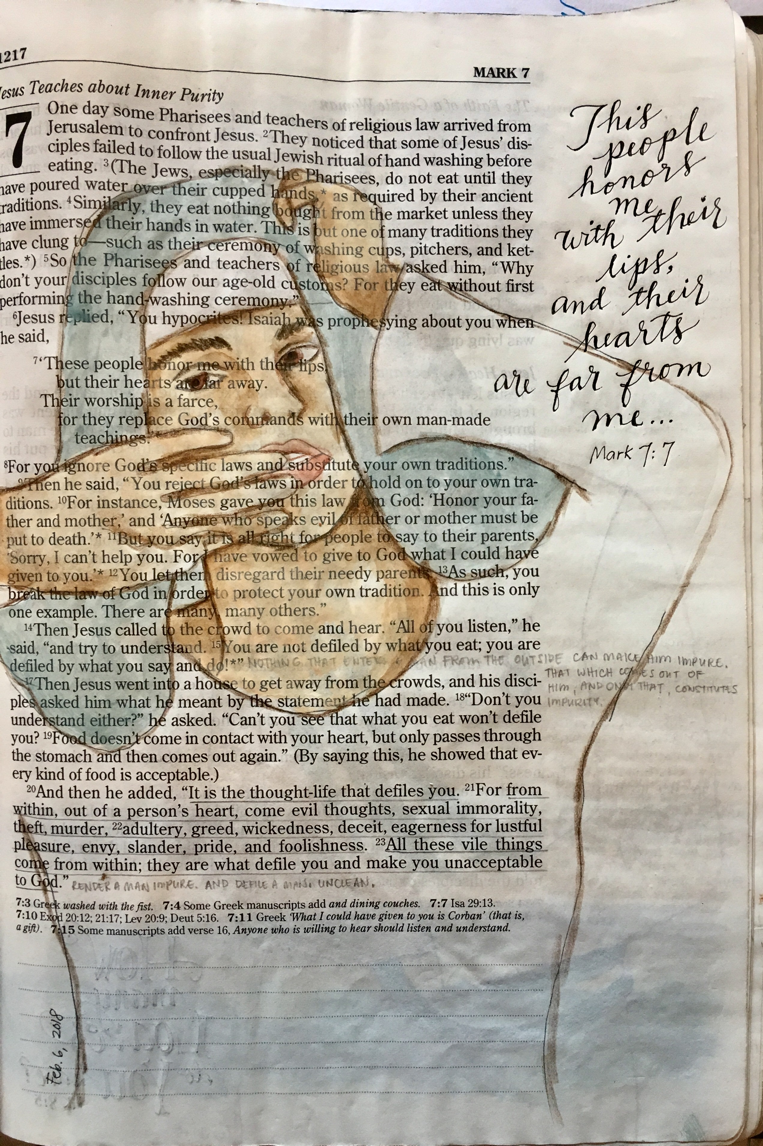 1217
MARK 7
Jesus Teaches about Inner Purity
7 One day some Pharisees and teachers of religious law arrived from
Jerusalem to confront Jesus. 2They noticed that some of Jesus' dis-
ciples failed to follow the usual Jewish ritual of hand washing before
eating. 3(The Jews, especially the Pharisees, do not eat until they
have poured water over their cupped hands,* as required by their ancient
traditions. 4Similarly, they eat nothing bought from the market unless they
have immersed their hands in water. This is but one of many traditions they
have clung to—such as their ceremony of washing cups, pitchers, and ket-
tles.*) 5So the Pharisees and teachers of religious law asked him, "Why
don't your disciples follow our age-old customs? For they eat without first
performing the hand-washing ceremony."
6Jesus replied, "You hypocrites! Isaiah was prophesying about you when
he said,
7'These people honor me with their lips,
but their hearts are far away.
Their worship is a farce,
for they replace God's commands with their own man-made
teachings.'*
8For you ignore God's specific laws and substitute your own traditions."
9Then he said, "You reject God's laws in order to hold on to your own tra-
ditions. 10For instance, Moses gave you this law from God: 'Honor your fa-
ther and mother,' and 'Anyone who speaks evil of father or mother must be
put to death.'* 11But you say it is all right for people to say to their parents,
'Sorry, I can't help you. For I have vowed to give to God what I could have
given to you.'* 12You let them disregard their needy parents. 13As such, you
break the law of God in order to protect your own tradition. And this is only
one example. There are many, many others."
14Then Jesus called to the crowd to come and hear. "All of you listen," he
said, "and try to understand. 15You are not defiled by what you eat; you are
defiled by what you say and do!*" NOTHING THAT ENTERS A MAN FROM THE OUTSIDE CAN MAKE HIM IMPURE.
THAT WHICH COMES OUT OF
HIM, AND ONLY THAT, CONSTITUTES
IMPURITY.
17Then Jesus went into a house to get away from the crowds, and his disci-
ples asked him what he meant by the statement he had made. 18"Don't you
understand either?" he asked. "Can't you see that what you eat won't defile
you? 19Food doesn't come in contact with your heart, but only passes through
the stomach and then comes out again." (By saying this, he showed that ev-
ery kind of food is acceptable.)
20And then he added, "It is the thought-life that defiles you. 21For from
within, out of a person's heart, come evil thoughts, sexual immorality,
theft, murder, 22adultery, greed, wickedness, deceit, eagerness for lustful
pleasure, envy, slander, pride, and foolishness. 23All these vile things
come from within; they are what defile you and make you unacceptable
to God." RENDER A MAN IMPURE. AND DEFILE A MAN: UNCLEAN.
7:3 Greek washed with the fist. 7:4 Some Greek manuscripts add and dining couches. 7:7 Isa 29:13.
7:10 Exod 20:12; 21:17; Lev 20:9; Deut 5:16. 7:11 Greek 'What I could have given to you is Corban' (that is,
a gift). 7:15 Some manuscripts add verse 16, Anyone who is willing to hear should listen and understand.
This
people
honors
me
with their
lips,
and their
hearts
are far from
me...
Mark 7:7
Feb. 6, 2018